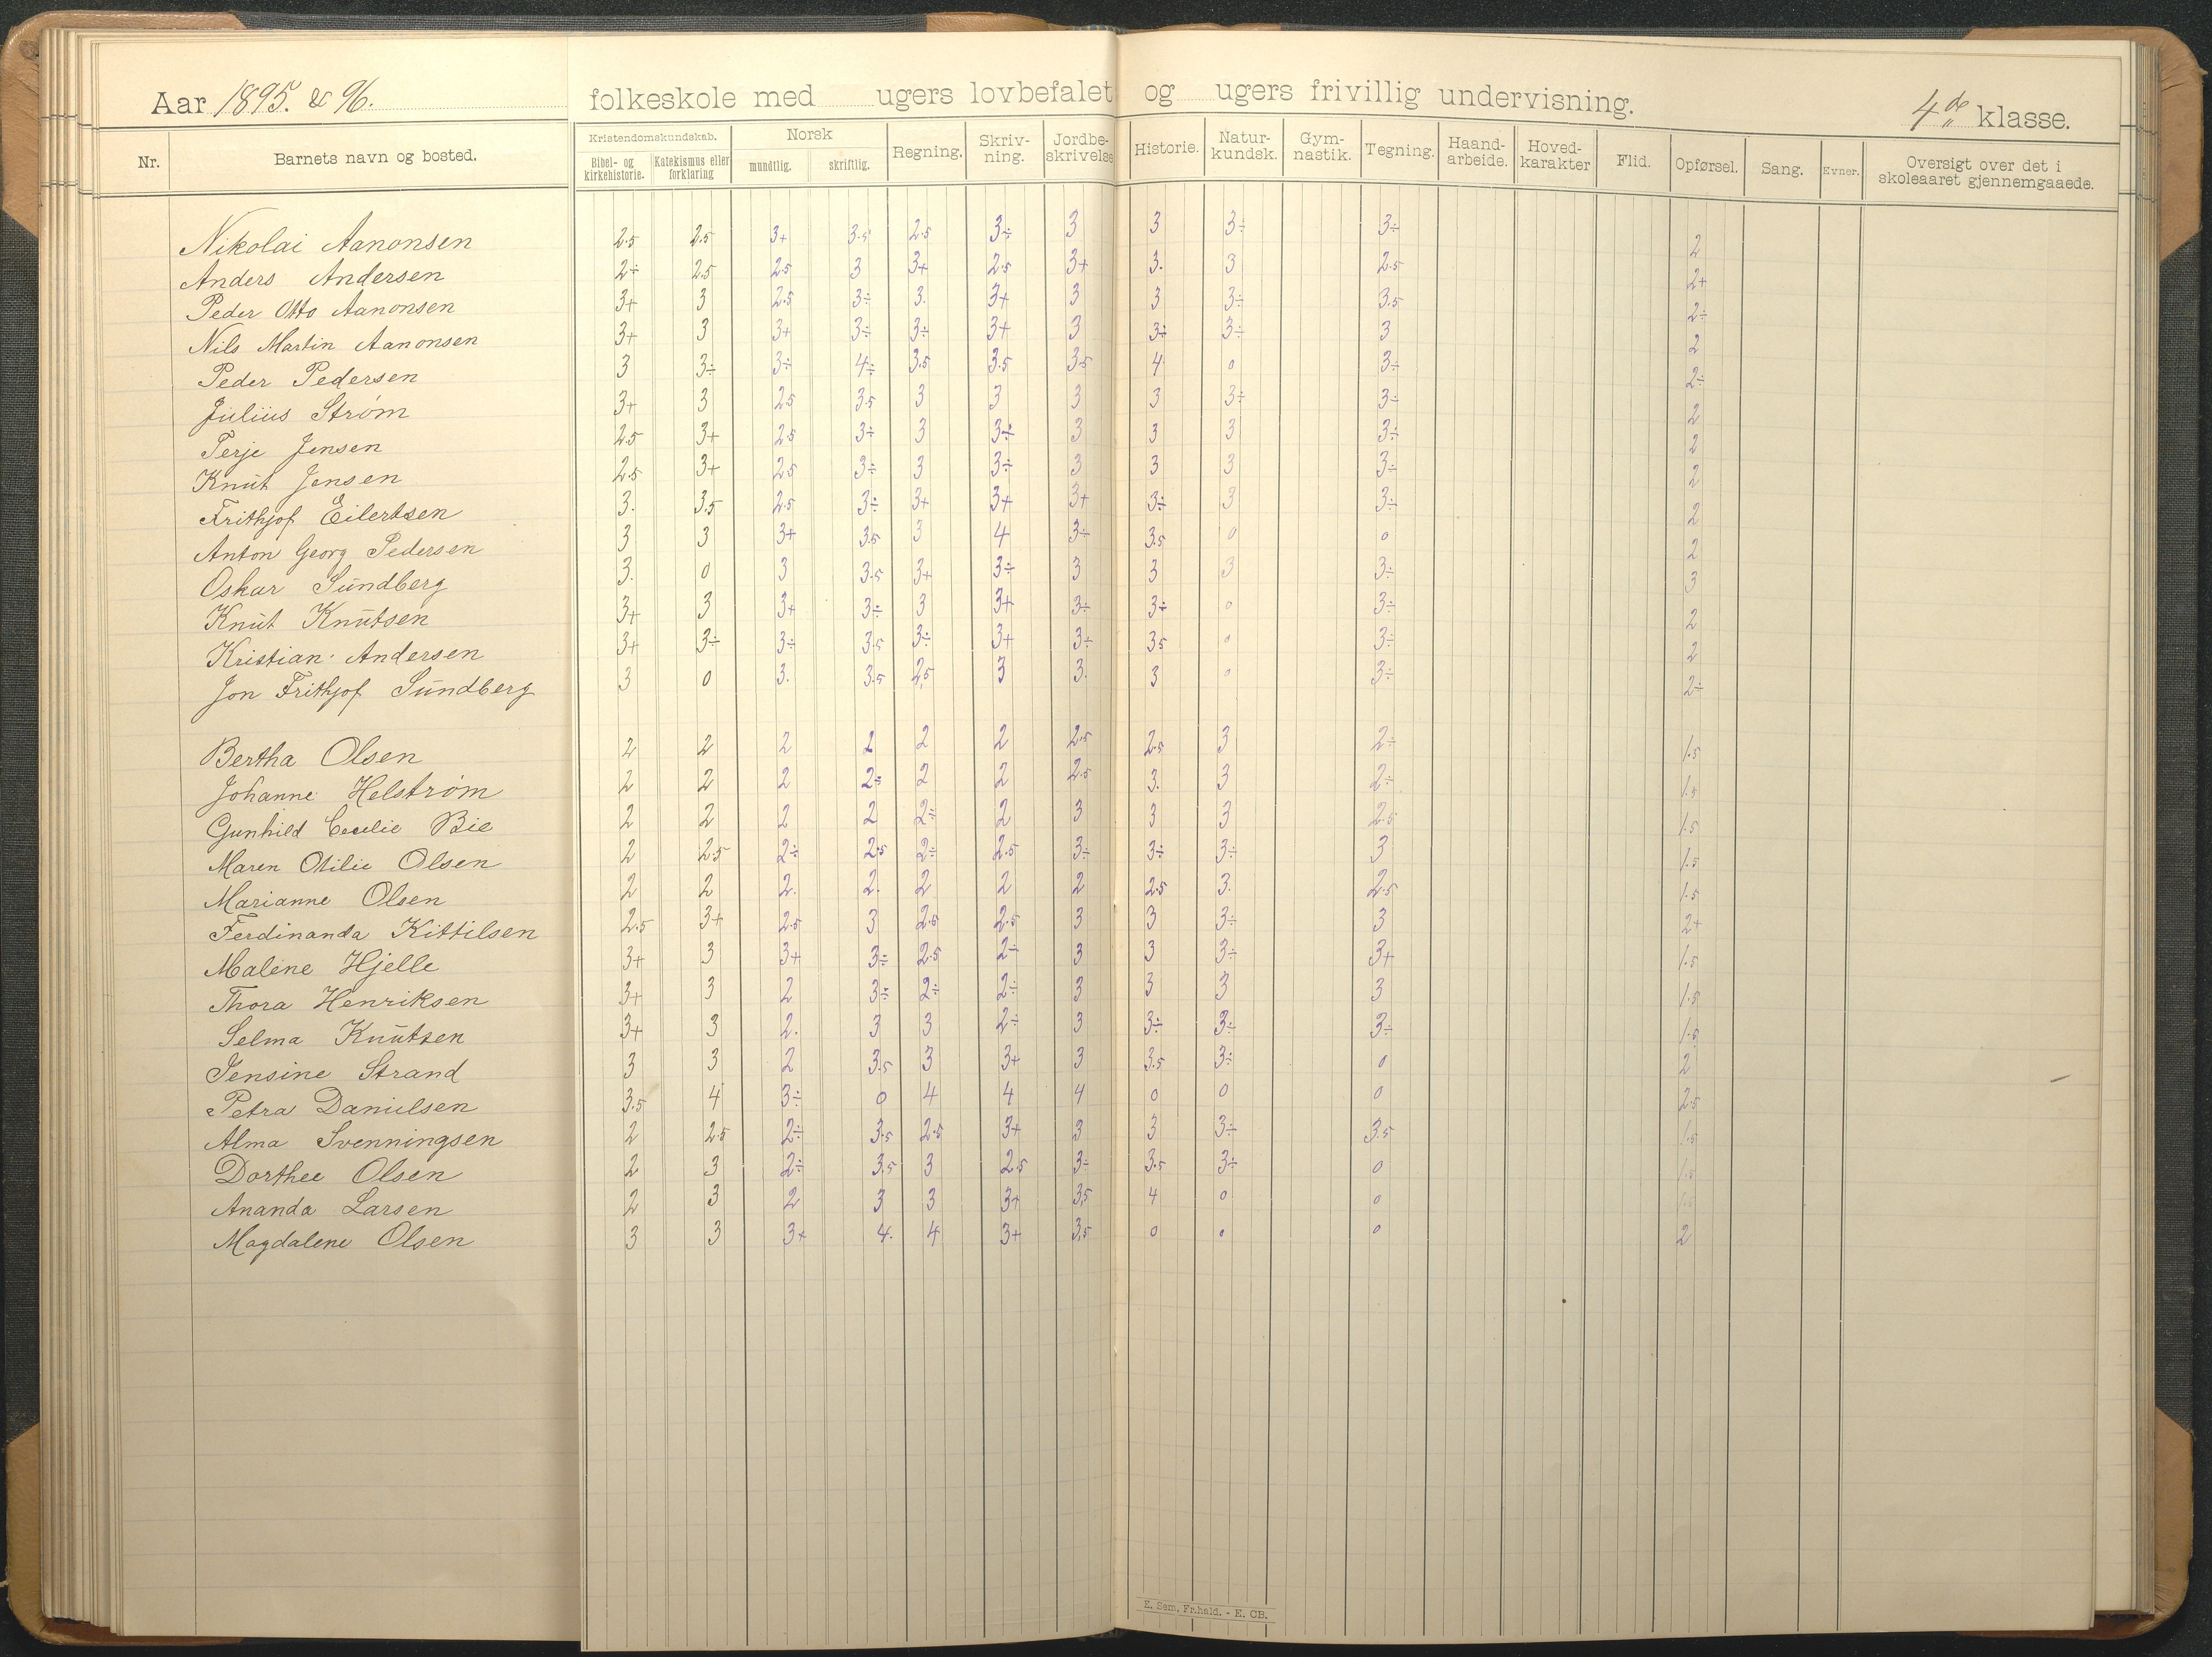 Aar 1895. & 96. folkeskole med ugers lovbefalet og ugers frivillig undervisning. 4de klasse.
Nr. Barnets navn og bosted. Kristendomskundskab. Bibel- og kirkehistorie. Katekismus eller forklaring Norsk mundtlig. skriftlig. Regning. Skriv-ning. Jordbe-skrivelse Historie. Natur-kundsk. Gym-nastik. Tegning. Haand-arbeide. Hoved-karakter Flid. Opførsel. Sang. Evner. Oversigt over det i skoleaaret gjennemgaaede.
Nikolai Aanonsen 2.5 2.5 3+ 3.5 2.5 3÷ 3 3 3÷ 3÷ 2
Anders Andersen 2÷ 2.5 2.5 3 3+ 2.5 3+ 3. 3 2.5 2+
Peder Otto Aanonsen 3+ 3 2.5 3÷ 3. 3+ 3 3 3÷ 3.5 2÷
Nils Martin Aanonsen 3+ 3 3+ 3÷ 3÷ 3+ 3 3÷ 3÷ 3 2
Peder Pedersen 3 3÷ 3÷ 4÷ 3.5 3.5 3.5 4 0 3÷ 2÷
Julius Strøm 3+ 3 2.5 3.5 3 3 3 3 3÷ 3÷ 2
Terje Jensen 2.5 3+ 2.5 3÷ 3 3÷ 3 3 3 3÷ 2
Knut Jensen 2.5 3+ 2.5 3÷ 3 3÷ 3 3 3 3÷ 2
Frithjof Eilertsen 3. 3.5 2.5 3÷ 3+ 3+ 3+ 3÷ 3 3÷ 2
Anton Georg Pedersen 3 3 3+ 3.5 3 4 3÷ 3.5 0 0 2
Oskar Sundberg 3. 0 3 3.5 3+ 3÷ 3 3 3 3÷ 3
Knut Knutsen 3+ 3 3+ 3÷ 3 3+ 3÷ 3÷ 0 3÷ 2
Kristian Andersen 3+ 3÷ 3÷ 3.5 3÷ 3+ 3÷ 3.5 0 3÷ 2
Jon Frithjof Sundberg 3 0 3. 3.5 2.5 3 3. 3 0 3÷ 2÷
Bertha Olsen 2 2 2 2 2 2 2.5 2.5 3 2÷ 1.5
Johanne Helstrøm 2 2 2 2÷ 2 2 2.5 3. 3 2÷ 1.5
Gunhild Cecelie Bie 2 2 2 2 2÷ 2 3 3 3 2.5 1.5
Maren Otilie Olsen 2 2.5 2÷ 2.5 2÷ 2.5 3÷ 3÷ 3÷ 3 1.5
Marianne Olsen 2 2 2. 2. 2 2 2 2.5 3. 2.5 1.5
Ferdinanda Kittilsen 2.5 3+ 2.5 3 2.5 2.5 3 3 3÷ 3 2+
Malene Hjelle 3+ 3 3+ 3÷ 2.5 2÷ 3 3 3÷ 3+ 1.5
Thora Henriksen 3+ 3 2 3÷ 2÷ 2÷ 3 3 3 3 1.5
Selma Knutsen 3+ 3 2. 3 3 2÷ 3 3÷ 3÷ 3÷ 1.5
Jensine Strand 3 3 2 3.5 3 3+ 3 3.5 3÷ 0 2
Petra Danielsen 3.5 4 3÷ 0 4 4 4 0 0 0 2.5
Alma Svenningsen 2 2.5 2÷ 3.5 2.5 3+ 3 3 3÷ 3.5 1.5
Dorthee Olsen 2 3 2÷ 3.5 3 2.5 3÷ 3.5 3÷ 0 1.5
Ananda Larsen 2 3 2 3 3 3+ 3,5 4 0 0 1.5
Magdalene Olsen 3 3 3+ 4. 4 3+ 3,5 0 0 0 2
E. Sem, Fr.hald. - E. CB.